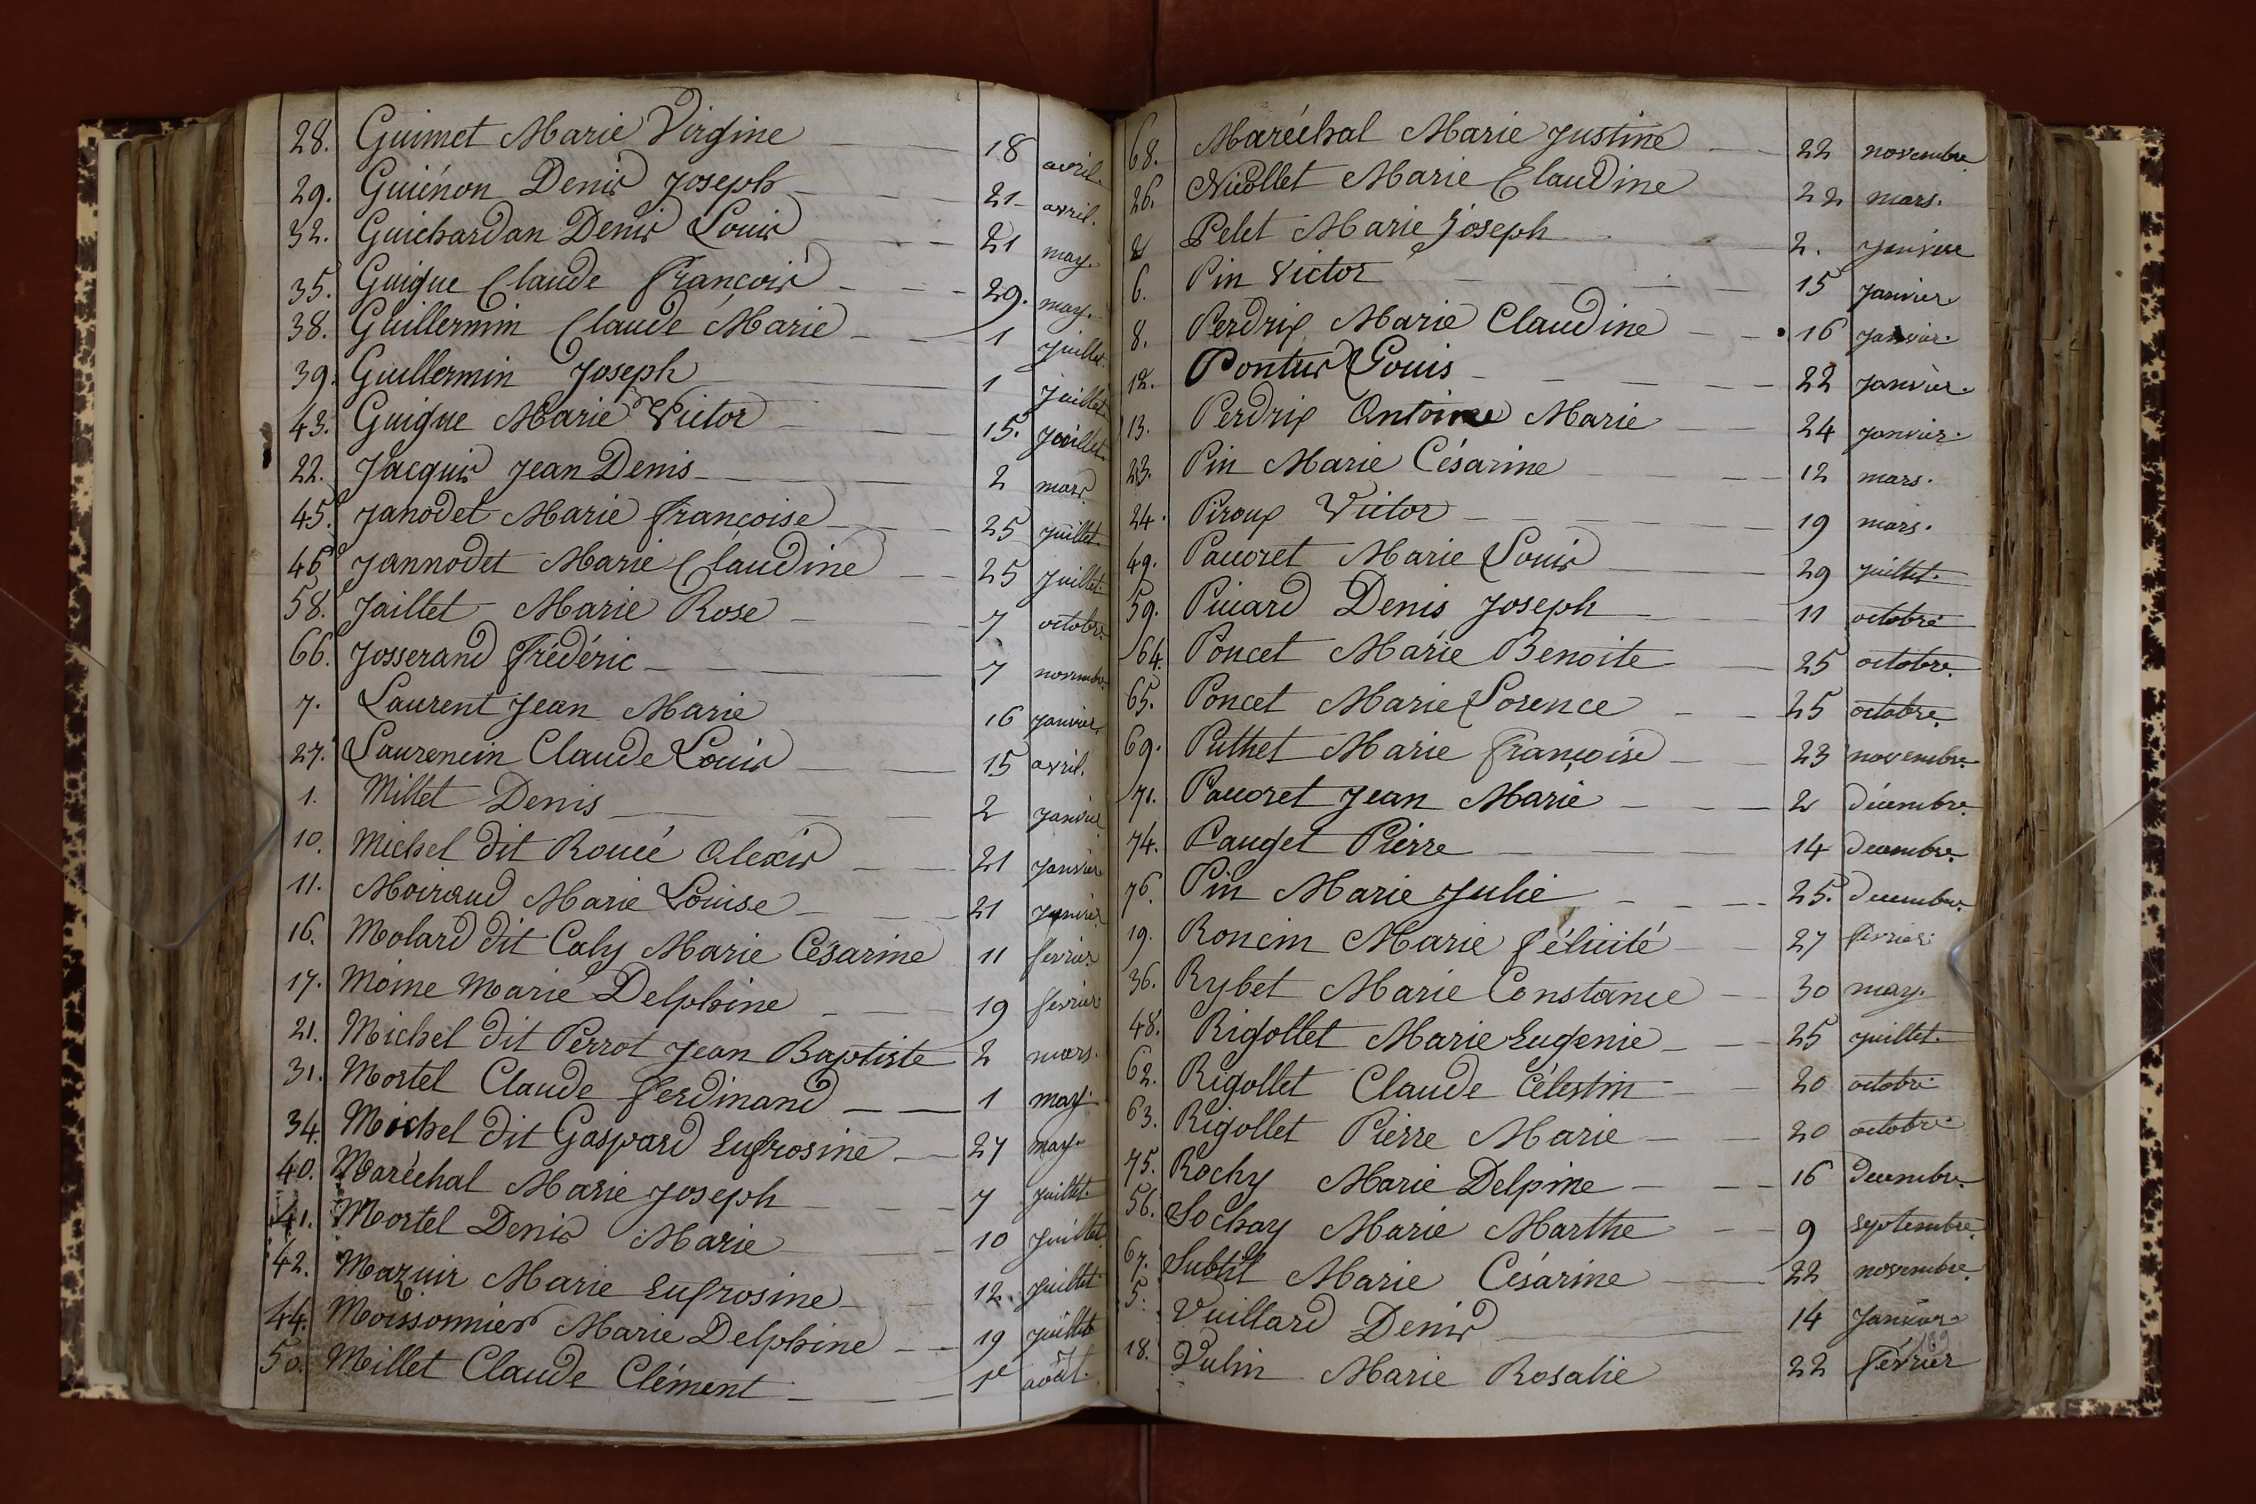 28. Guimet Marie Virgine 18 avril.
29. Guiénon Denis Joseph 21 avril.
32. Guichardan Denis Louis 21 may.
35. Guigue Claude François 29. may.
38. Guillermin Claude Marie 1 juillet.
39. Guillermin Joseph 1 juillet.
43. Guigue Marie Victor 15. juillet.
22. Jacquis Jean Denis 2 mars
45. Janodet Marie françoise 25 juillet.
46 Jannodet Marie Claudine 25 juillet.
58. Jaillet Marie Rose 7 octobre
66. Josserand frédéric 7 novembre.
7. Laurent Jean Marie 16 janvier
27. Laurencin Claude Louis 15 avril.
1. Millet Denis 2 janvier
10. Michel dit Rouéé Alexis 21 janvier
11. Moiraud Marie Louise 21 janvier
16. Molard dit Caly Marie Césarine 11 fevrier
17. Moine Marie Delphine 19 fevrier
21. Michel dit Perrot Jean Baptiste 2 mars.
31. Mortel Claude ferdinand 1 may.
34. Michel dit Gaspard Eufrosine 27 may.
40. Maréchal Marie Joseph 7 juillet.
41. Mortel Denis Marie 10 juillet.
42. Mazuir Marie Eufrosine 12. juillet.
44. Moissonnier Marie Delphine 19 juillet
50. Millet Claude Clément 1e août.
68. Maréchal Marie Justine 22 novembre
26. Nicollet Marie Claudine 22 mars.
2 Pelet Marie Joseph 2. janvier
6. Pin Victor 15 janvier
8. Perdrix Marie Claudine 16 janvier.
12. Pontus Louis 22 janvier.
13. Perdrix Antoine Marie 24 janvier.
23. Pin Marie Césarine 12 mars.
24. Piroux Victor 19 mars.
49. Paucret Marie Louis 29 juillet.
59. Picard Denis Joseph 11 octobre
64. Poncet Marie Benoite 25 octobre.
65. Poncet Marie Lorence 25 octobre.
69. Puthet Marie françoise 23 novembre.
71. Paucret Jean Marie 2 décembre.
74. Pauget Pierre 14 décembre.
76. Pin Marie Julie 25. decembre.
19. Roncin Marie félicité 27 fevrier.
36. Rybet Marie Constance 30 may.
48. Rigollet Marie Eugenie 25 juillet.
62. Rigollet Claude Célestin 20 octobre.
63. Rigollet Pierre Marie 20 octobre.
75. Rochy Marie Delpine 16 decembre.
56. Sochay Marie Marthe 9 septembre.
67. Subtil Marie Césarine 22 novembre.
5. Vuillard Denis 14 janvier
189
18. Vulin Marie Rosalie 22 février